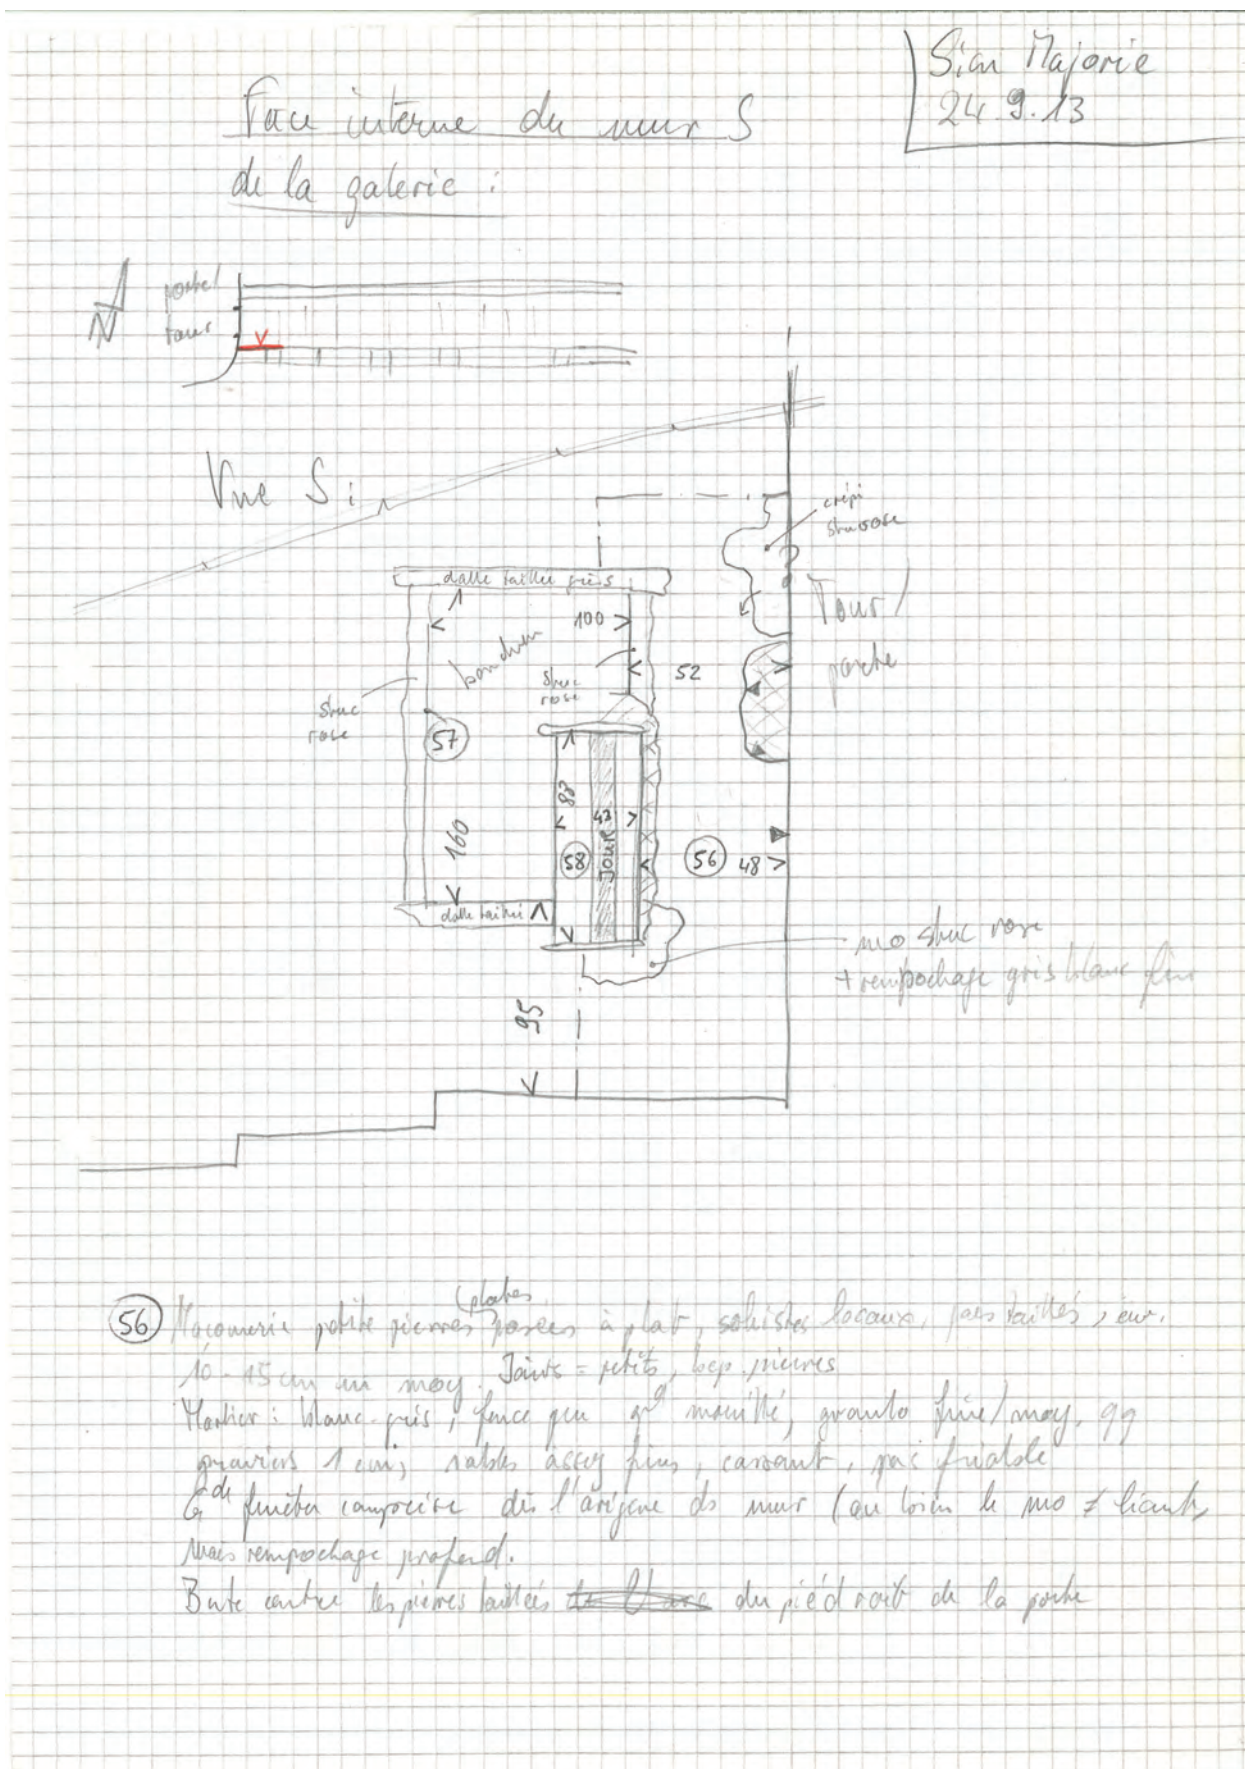 Sion Majorie
24.9.13
Face interne du mur S
de la galerie :
N
porte/
tour
V
Vue S :
crépi
stuc rose
dalle taillée grès
100
bouchon
Tour/
porte
stuc
rose
52
stuc
rose
57
83
43
160
58
JOUR
56
48
dalle taillée
mo stuc rose
+ rempochage gris blanc fin
95
56 Maçonnerie petite pierres (plates) posées à plat, schistes locaux, pas taillés, env.
10-15 cm en moy. Joints = petits, bcp. pierres
Mortier : blanc-gris, fonce peu qd mouillé, granulo fine/moy, qq
graviers 1 cm, sables assez fins, cassant, pas friable
Gde fenêtre comprise dès l'origine ds mur (au loin le mo ≠ liant,
mais rempochage profond.
Bute contre les pierres taillées du piédroit de la porte